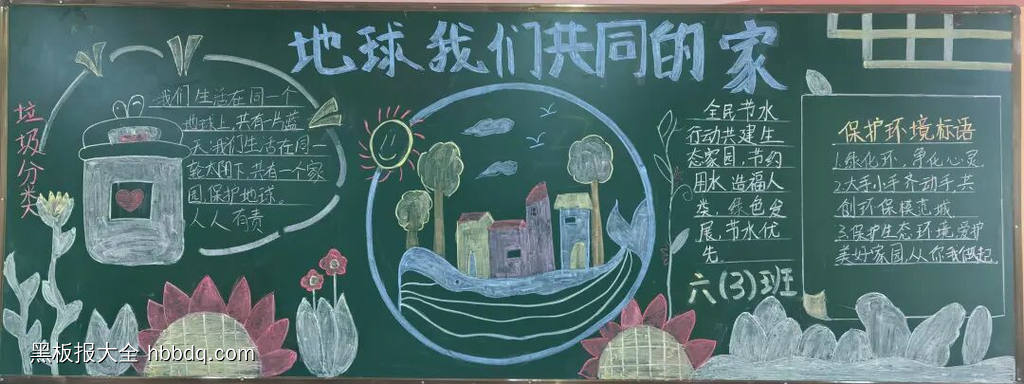 地球我们共同的家
垃圾分类
我们生活在同一个
地球上,共有一片蓝
天,我们生活在同一
轮太阳下,共有一个家
园,保护地球。
人人有责
全民节水
行动共建生
态家园,节约
用水造福人
类,绿色发
展,节水优
先
六(3)班
保护环境标语
1.绿化环,净化心灵
2.大手小手齐动手,共
创环保模范城
3.保护生态环境,爱护
美好家园从你我做起
黑板报大全 hbbdq.com